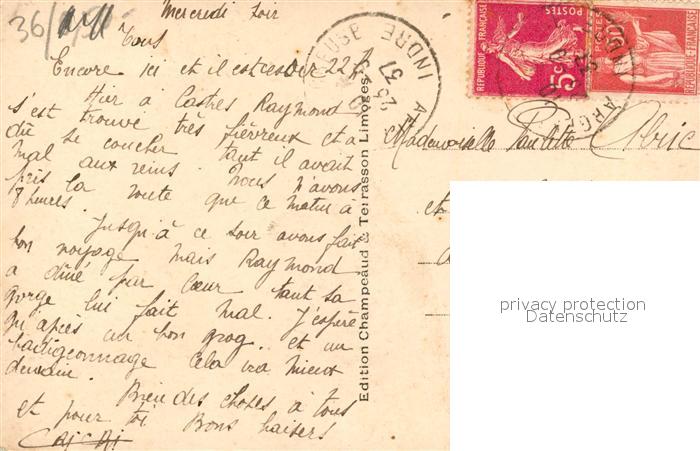 36/
Mercredi soir
Tous
Encore ici et il est ce soir 22 h
Hier à Castres Raymond
s'est trouvé très fiévreux et a
dû se coucher tant il avait
mal aux reins. Nous n'avons
pris la route que ce matin à
8 heures.
Jusqu'à ce soir avons fait
bon voyage mais Raymond
a dîné par cœur tant sa
gorge lui fait mal. J'espère
qu'après un bon grog et un
badigeonnage cela ira mieux
demain.
Bien des choses à tous
et pour toi Bons baisers
Edition Champeaud & Terrasson Limoges
INDRE
23
37
REPUBLIQUE FRANÇAISE
POSTES
5c
REPUBLIQUE FRANÇAISE
POSTES
INDRE
Mademoiselle Paulette
et
privacy protection
Datenschutz